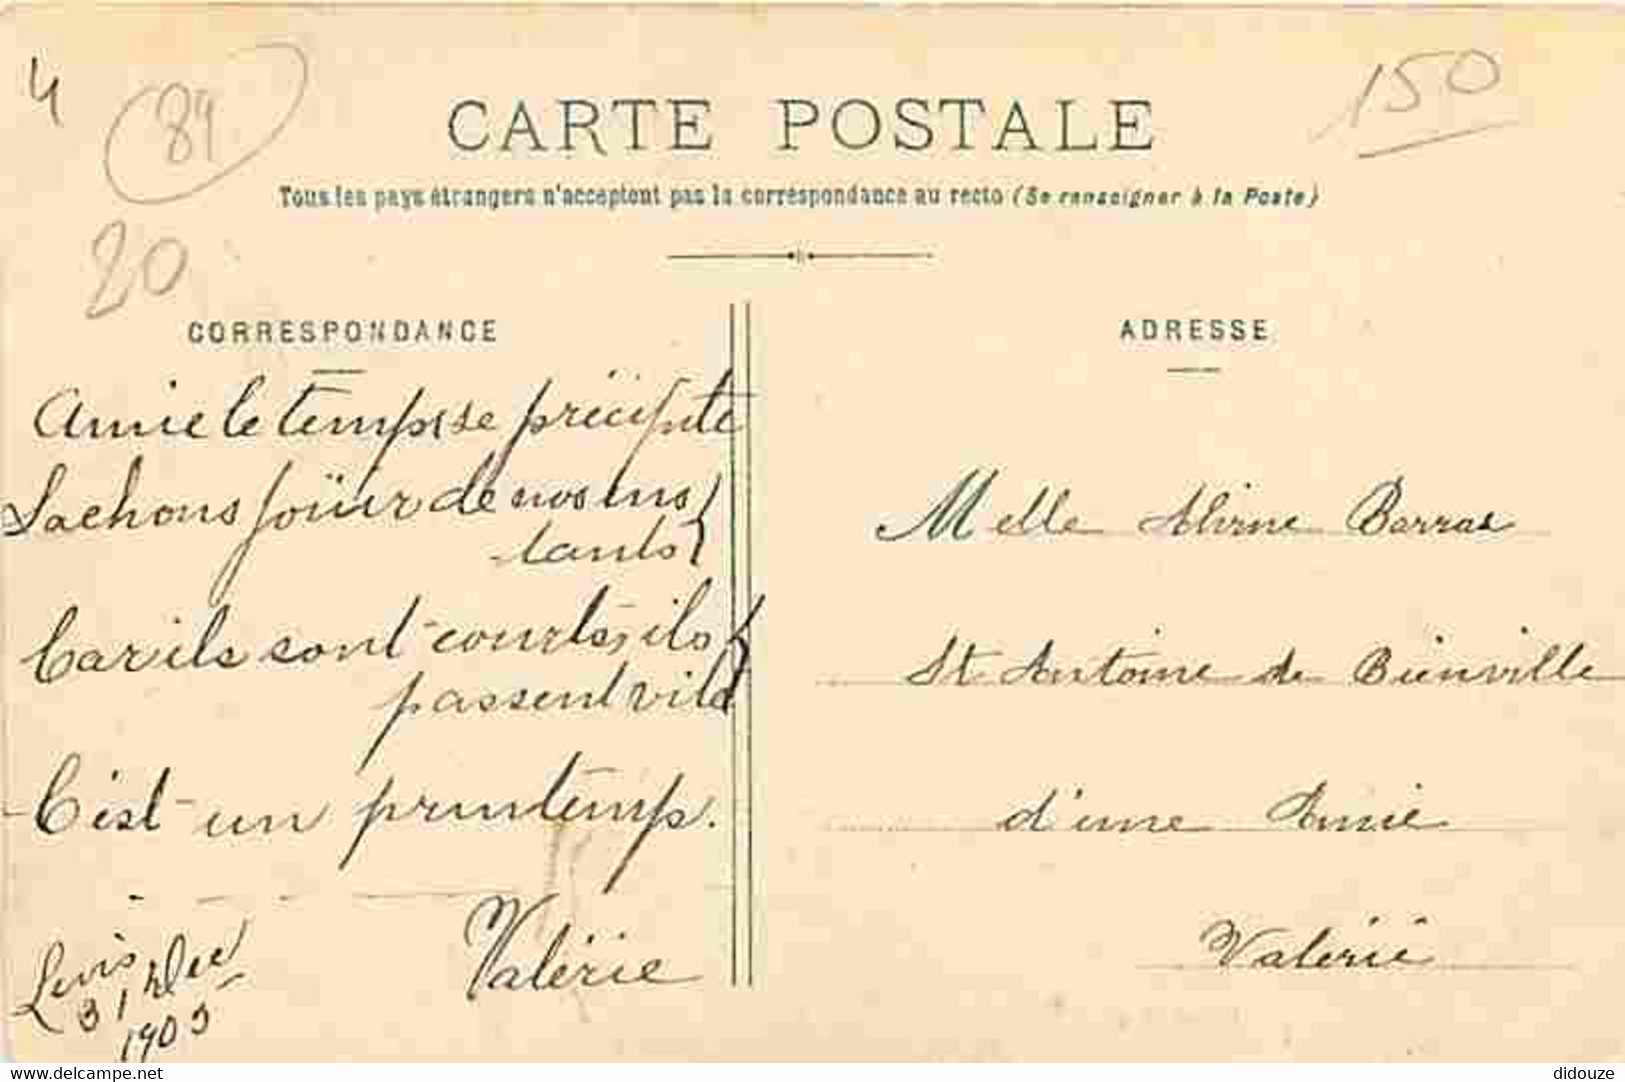 4
84
150
CARTE POSTALE
Tous les pays étrangers n'acceptent pas la correspondance au recto (Se renseigner à la Poste)
20
CORRESPONDANCE
Amie le temps se précipite
Sachons joüir de nos ins
tants
Car ils sont courts, ils
passent vite
C'est un printemps.
Valérie
Levis
31 Dec
1909
ADRESSE
Melle Barras
St Antoine de Bienville
d'une Amie
Valérie
delcampe.net
didouze